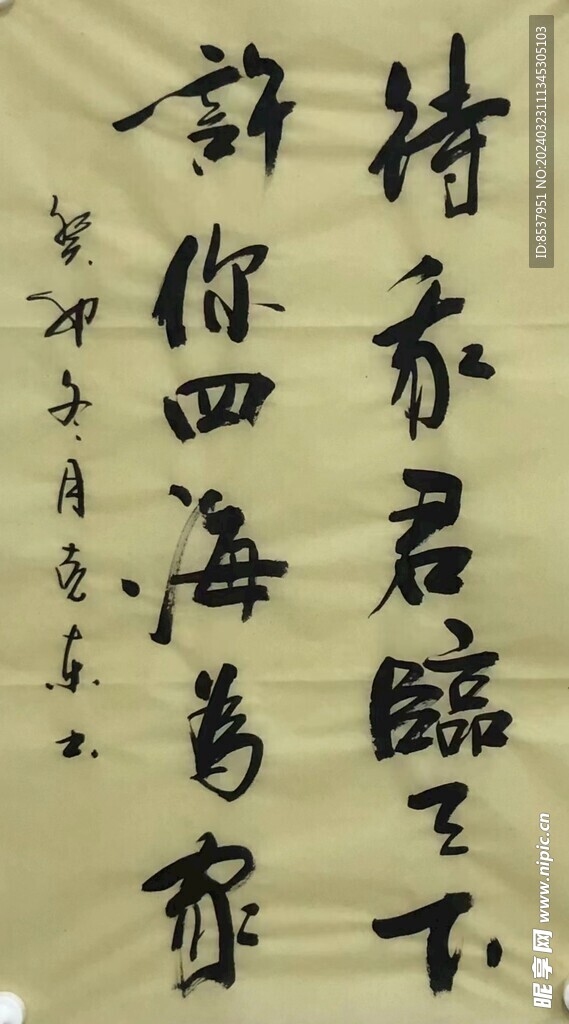 待我君臨天下
許你四海為家
癸卯冬月克東书
ID:8537951 NO:20240323111345305103
昵享网 www.nipic.cn